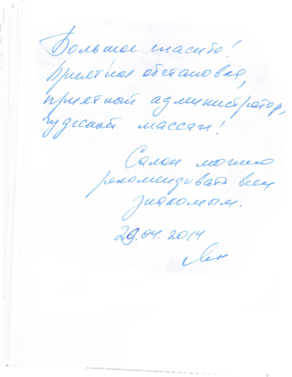 Большое спасибо!
Приятная обстановка,
приятный администратор,
чудесный массаж!
Салон можно
рекомендовать всем
знакомым.
29.04.2014